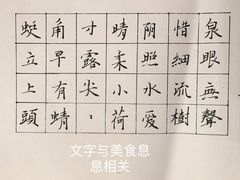 泉眼無聲
惜細流樹
阴照水爱
晴柔小荷
才露尖〻
角早有蜻
蜓立上頭
文字与美食息
息相关